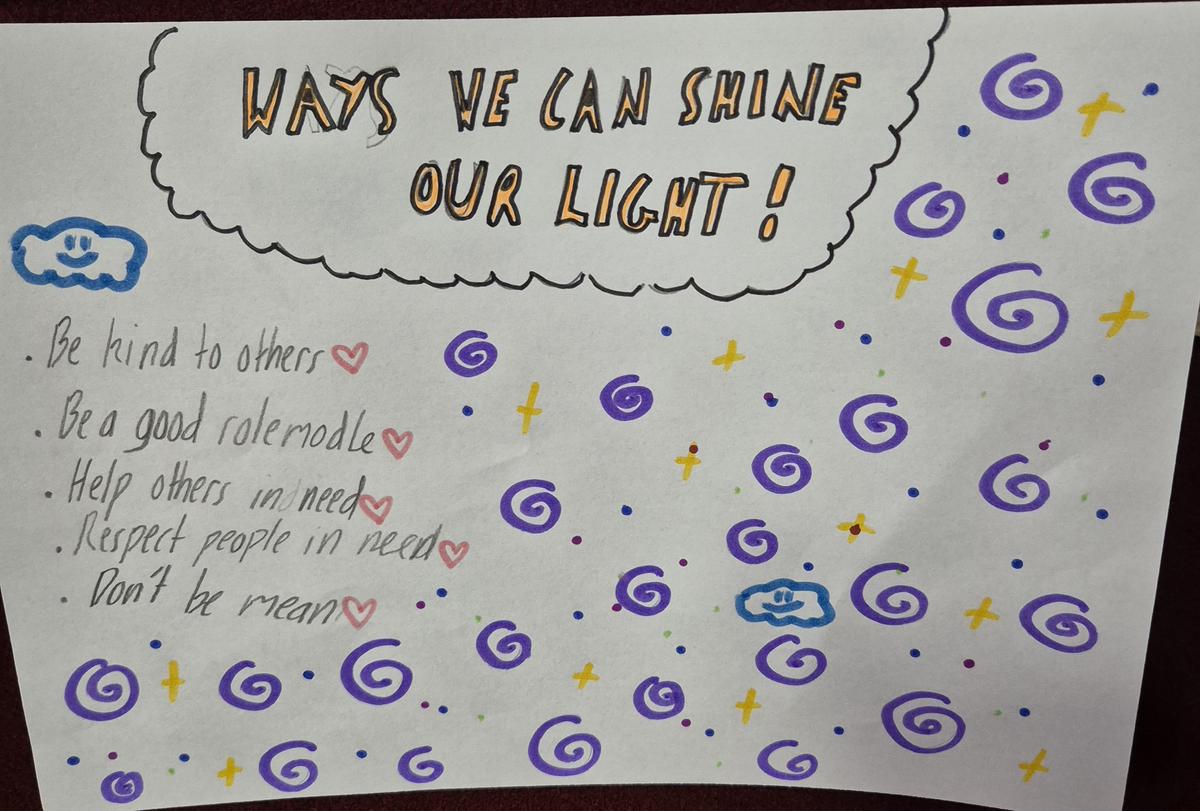 WAYS WE CAN SHINE
OUR LIGHT!
. Be kind to others
. Be a good rolemodle
. Help others in need
. Respect people in need
. Don't be mean